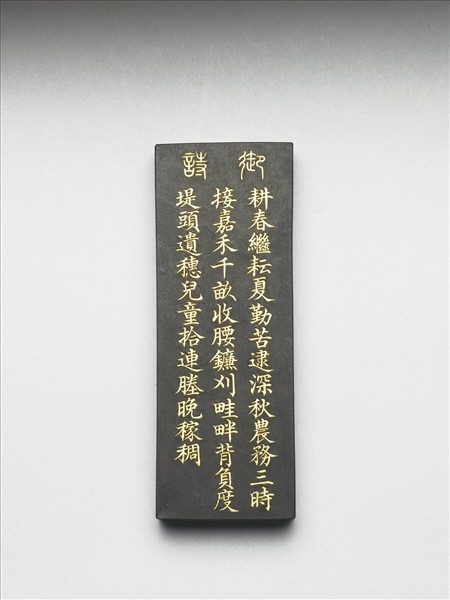 御詩
耕春繼耘夏勤苦逮深秋農務三時
接嘉禾千畝收腰鐮刈畦畔背負度
堤頭遺穗兒童拾連塍晚稼稠